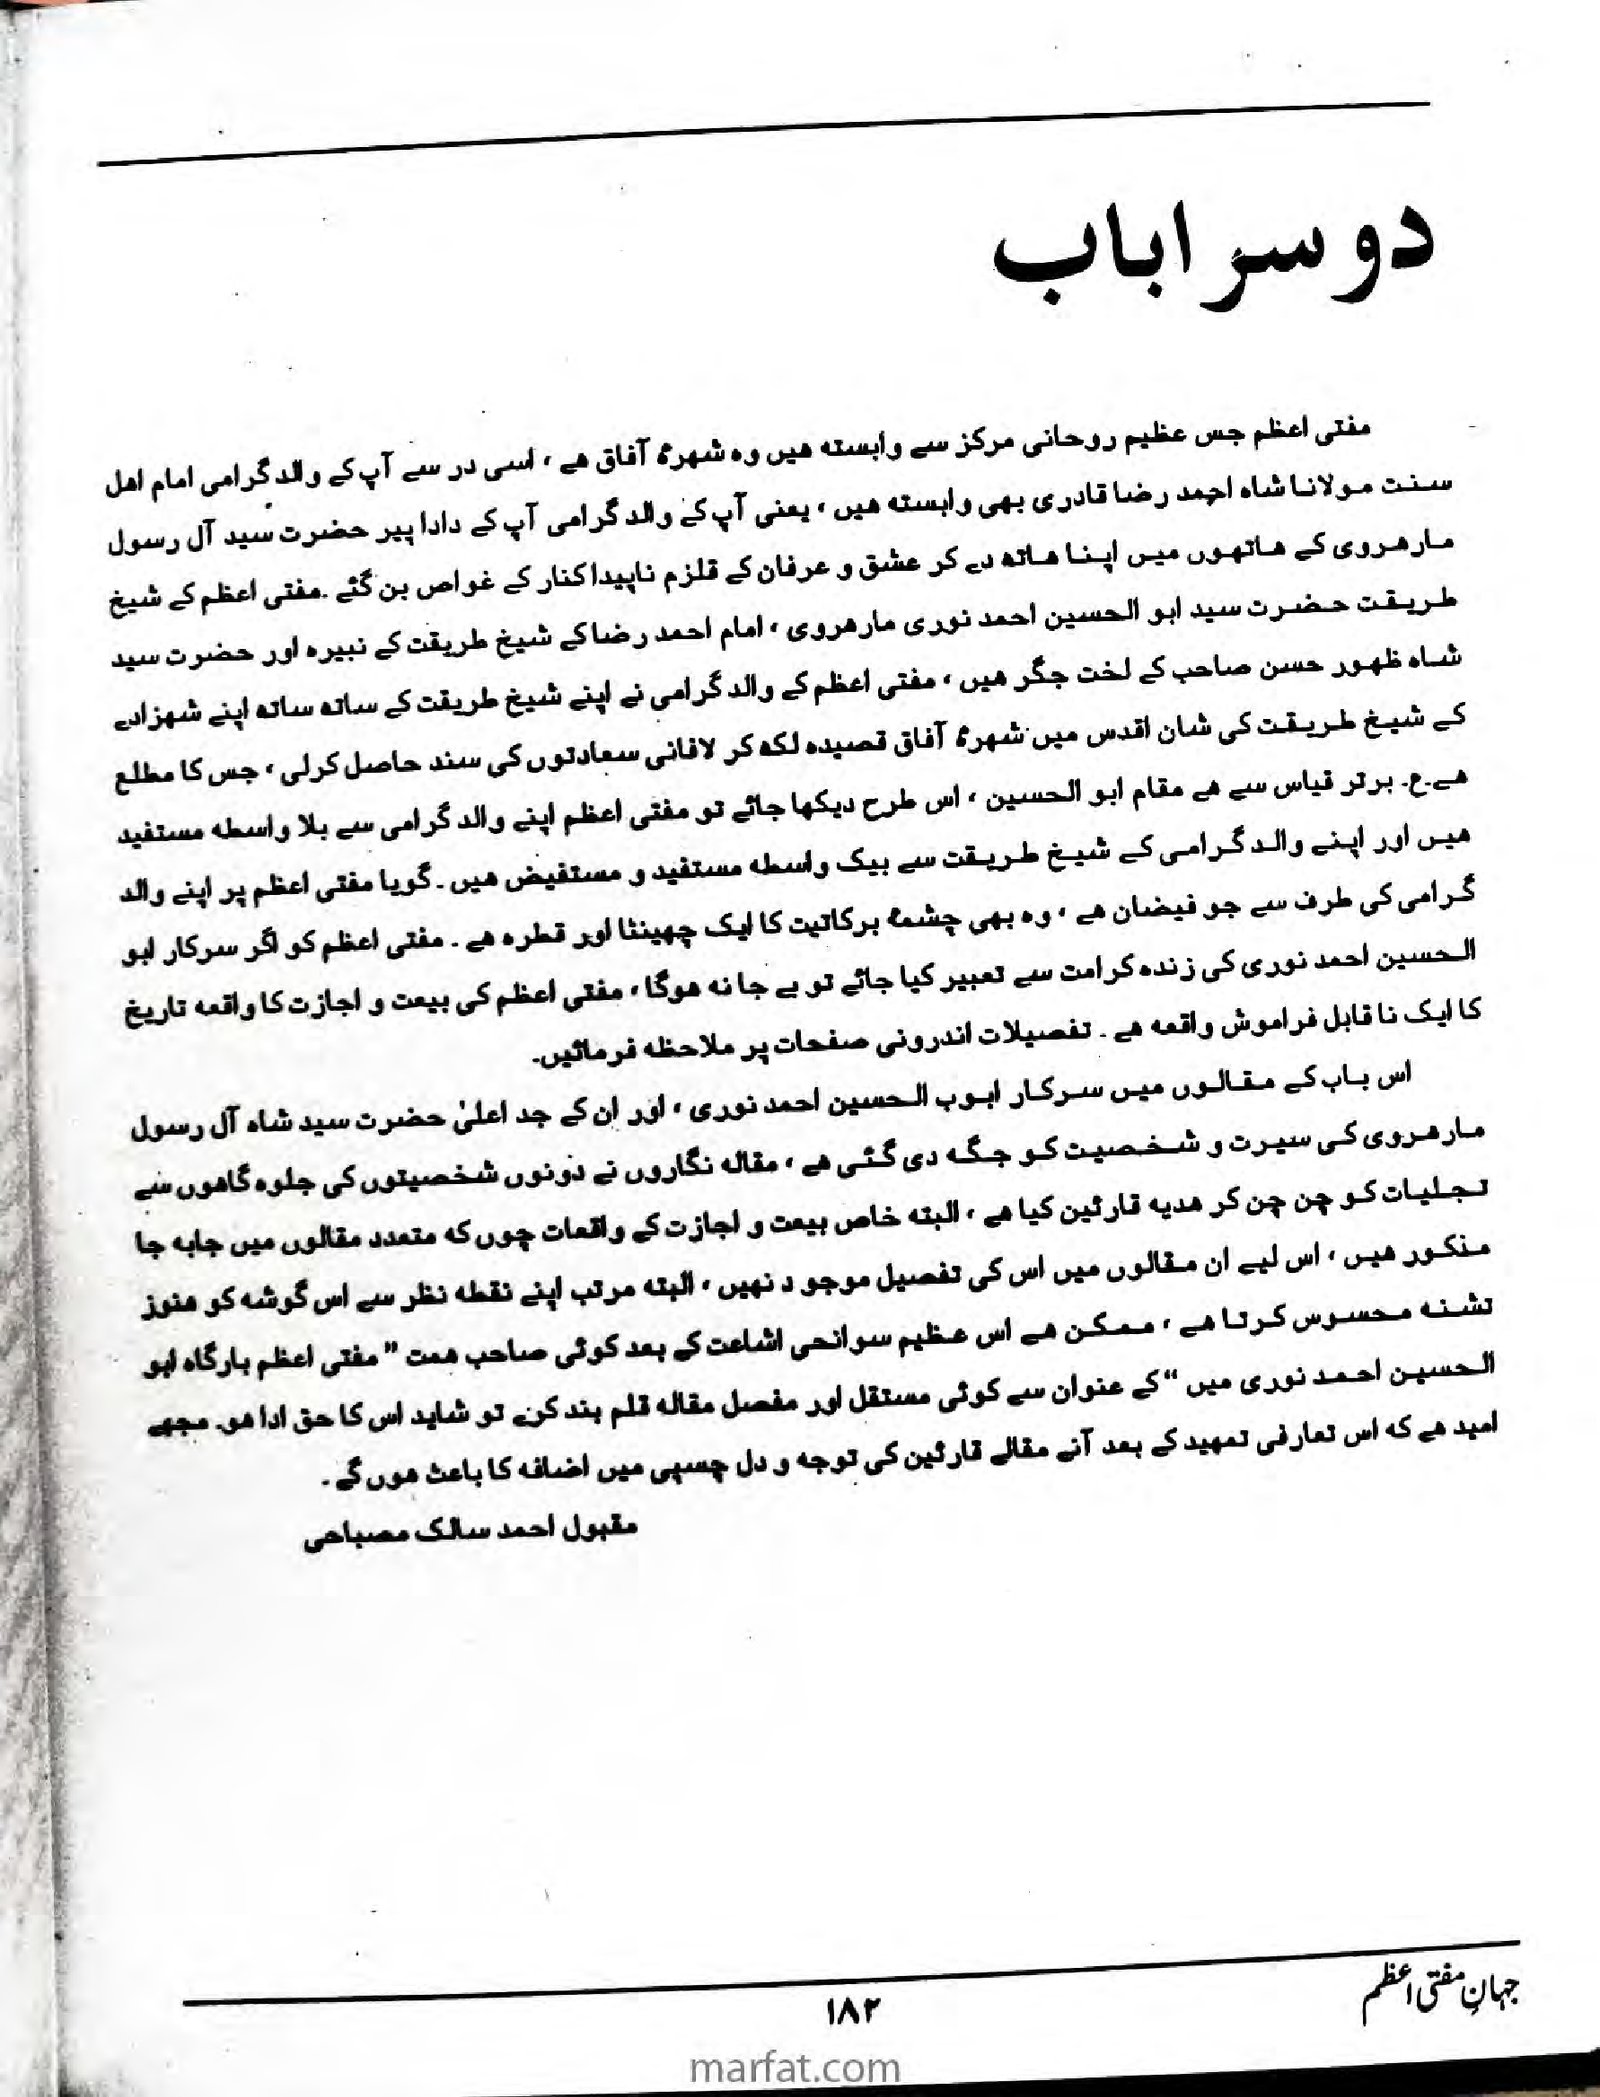 دوسرا باب
مفتی اعظم جس عظیم روحانی مرکز سے وابستہ ھیں وہ شھرۂ آفاق ھے ، اسی در سے آپ کے والد گرامی امام اھل
سنت مولانا شاہ احمد رضا قادری بھی وابستہ ھیں ، یعنی آپ کے والد گرامی آپ کے دادا پیر حضرت سید آل رسول
مارھروی کے ھاتھوں میں اپنا ھاتھ دے کر عشق و عرفان کے قلزم ناپیدا کنار کے غواص بن گئے ۔ مفتی اعظم کے شیخ
طریقت حضرت سید ابو الحسین احمد نوری مارھروی ، امام احمد رضا کے شیخ طریقت کے نبیرہ اور حضرت سید
شاہ ظھور حسن صاحب کے لخت جگر ھیں ، مفتی اعظم کے والد گرامی نے اپنے شیخ طریقت کے ساتھ ساتھ اپنے شھزادے
کے شیخ طریقت کی شان اقدس میں شھرۂ آفاق قصیدہ لکھ کر لافانی سعادتوں کی سند حاصل کرلی ، جس کا مطلع
ھے ۔ع۔ برتر قیاس سے ھے مقام ابو الحسین ، اس طرح دیکھا جائے تو مفتی اعظم اپنے والد گرامی سے بلا واسطہ مستفید
ھیں اور اپنے والد گرامی کے شیخ طریقت سے بیک واسطہ مستفید و مستفیض ھیں ۔ گویا مفتی اعظم پر اپنے والد
گرامی کی طرف سے جو فیضان ھے ، وہ بھی چشمۂ برکاتیت کا ایک چھینٹا اور قطرہ ھے ۔ مفتی اعظم کو اگر سرکار ابو
الحسین احمد نوری کی زندہ کرامت سے تعبیر کیا جائے تو بے جا نہ ھوگا ، مفتی اعظم کی بیعت و اجازت کا واقعہ تاریخ
کا ایک نا قابل فراموش واقعہ ھے ۔ تفصیلات اندرونی صفحات پر ملاحظہ فرمائیں۔
اس باب کے مقالوں میں سرکار ابوب الحسین احمد نوری ، اور ان کے جد اعلیٰ حضرت سید شاہ آل رسول
مارھروی کی سیرت و شخصیت کو جگہ دی گئی ھے ، مقالہ نگاروں نے دونوں شخصیتوں کی جلوہ گاھوں سے
تجلیات کو چن چن کر ھدیہ قارئین کیا ھے ، البتہ خاص بیعت و اجازت کے واقعات چوں کہ متعدد مقالوں میں جابہ جا
مذکور ھیں ، اس لیے ان مقالوں میں اس کی تفصیل موجود نھیں ، البتہ مرتب اپنے نقطہ نظر سے اس گوشہ کو ھنوز
تشنہ محسوس کرتا ھے ، ممکن ھے اس عظیم سوانحی اشاعت کے بعد کوئی صاحب ھمت ” مفتی اعظم بارگاہ ابو
الحسین احمد نوری میں “ کے عنوان سے کوئی مستقل اور مفصل مقالہ قلم بند کرے تو شاید اس کا حق ادا ھو۔ مجھے
امید ھے کہ اس تعارفی تمھید کے بعد آنے مقالے قارئین کی توجہ و دل چسپی میں اضافہ کا باعث ھوں گے ۔
مقبول احمد سالک مصباحی
جہانِ مفتی اعظم
۱۸۲
marfat.com